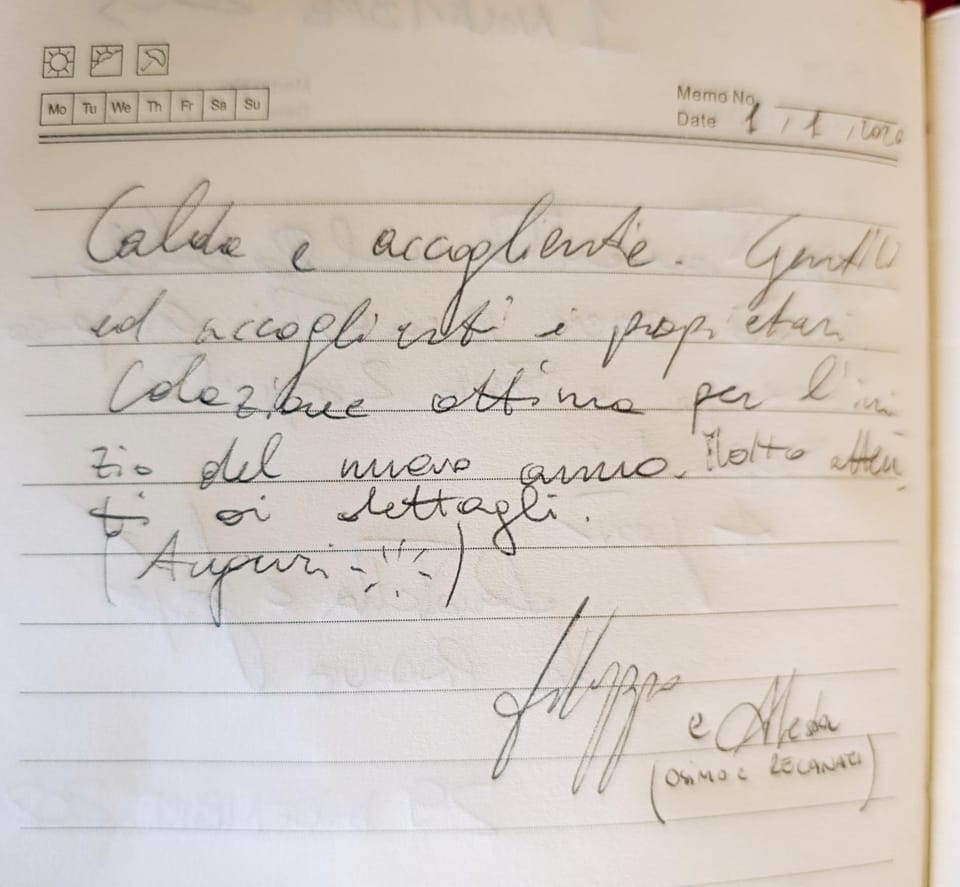 Mo Tu We Th Fr Sa Su
Memo No.
Date 1/1/2020
Calda e accogliente. Gentili
ed accoglienti i proprietari
Colazione ottima per l'ini
zio del nuovo anno. Molto atten
ti ai dettagli.
(Auguri)
Filippo
e
(OSIMO E RECANATI)